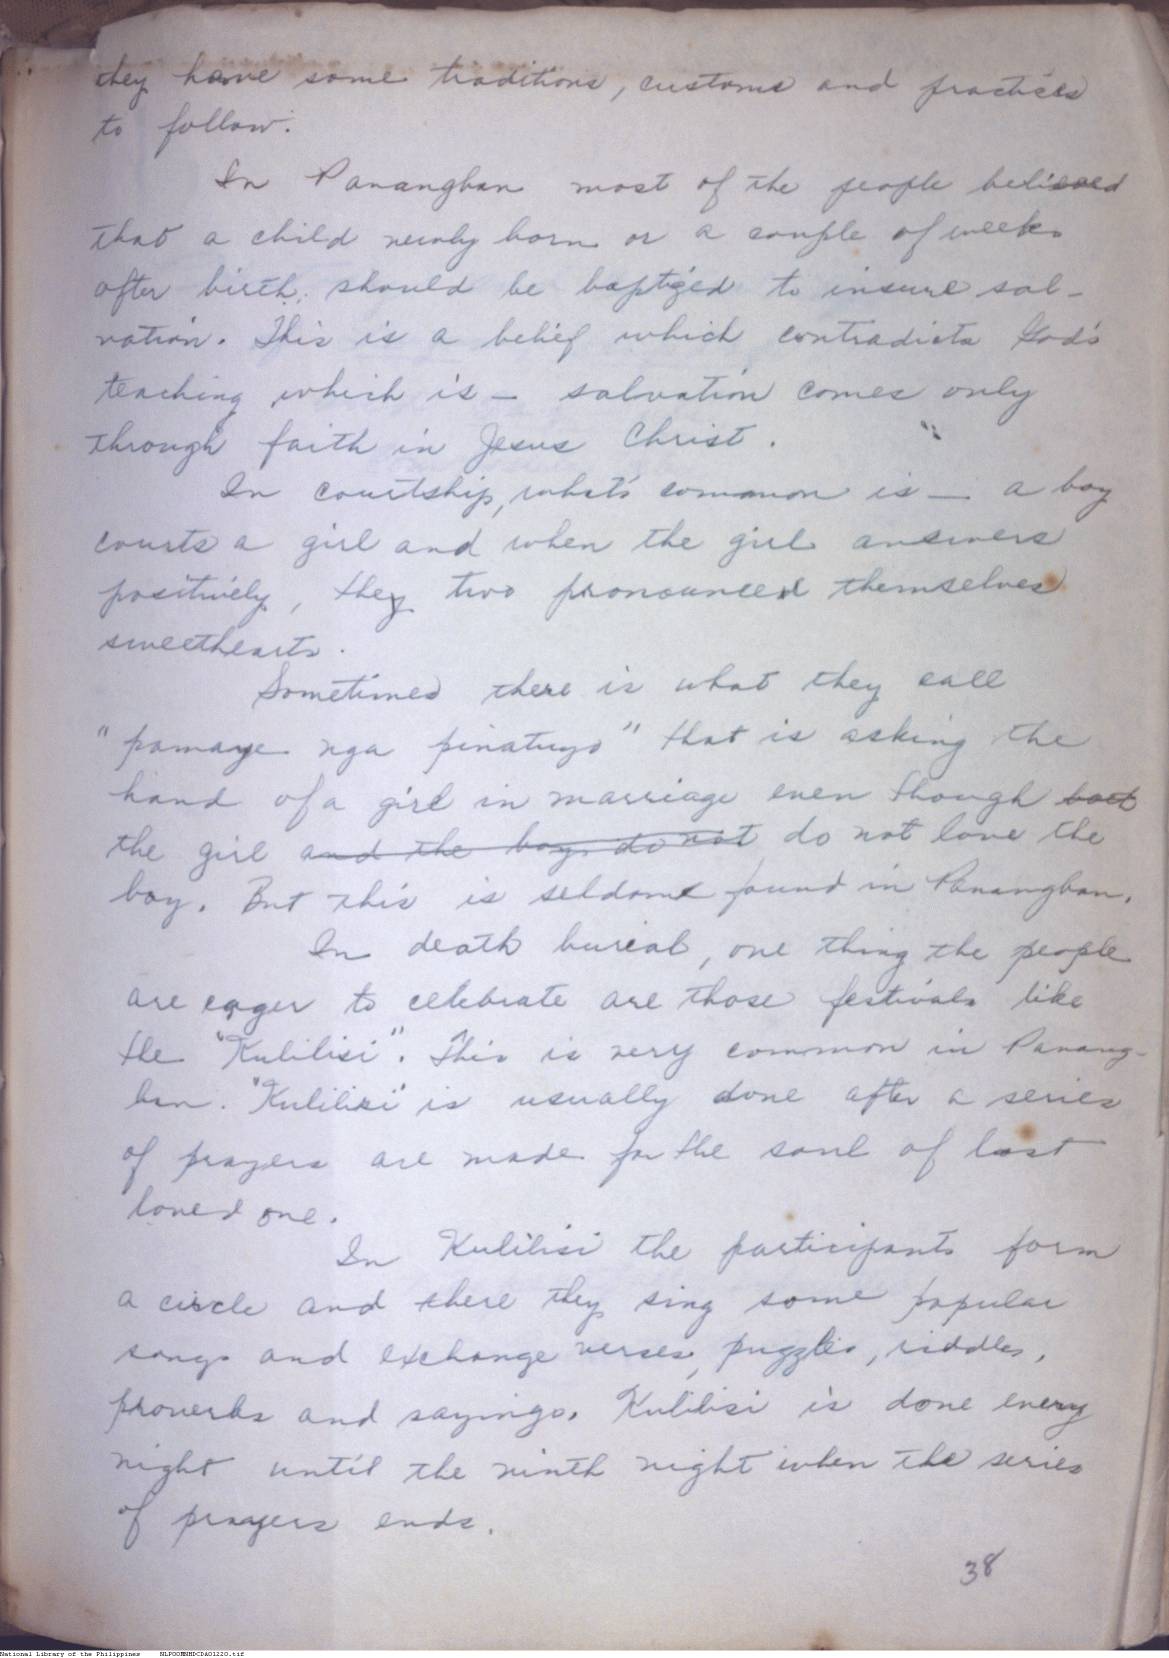 they have some traditions, customs and practices
to follow.
In Panangban most of the people believed
that a child newly born or a couple of weeks
after birth, should be baptized to insure sal-
vation. This is a belief which contradicts God's
teaching which is — salvation comes only
through faith in Jesus Christ.
In courtship, what's common is — a boy
courts a girl and when the girl answers
positively, they two pronounced themselves
sweethearts.
Sometimes there is what they call
"pamaye nga pinatuyo" that is asking the
hand of a girl in marriage even though
the girl and the boy do not do not love the
boy. But this is seldom found in Panangban.
In death burial, one thing the people
are eager to celebrate are those festivals like
the "Kulilisi". This is very common in Panang-
ban. "Kulilisi" is usually done after a series
of prayers are made for the soul of lost
loved one.
In Kulilisi the participants form
a circle and there they sing some popular
songs and exchange verses, puzzles, riddles,
proverbs and sayings. Kulilisi is done every
night until the ninth night when the series
of prayers ends.
38
National Library of the Philippines NLPOOMNHDCDA01220.tif